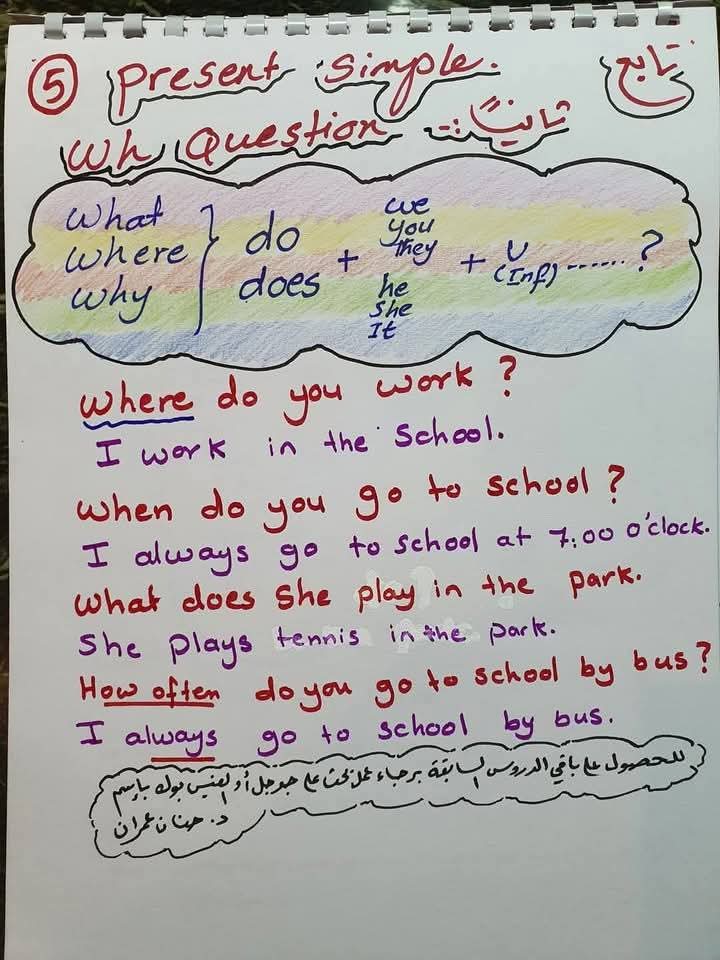 5 Present Simple. تابع
Wh Question -: ثانيًا
What
Where
Why
do
does
+
we
you
they
he
she
It
+ V
(Inf) ...... ?
Where do you work ?
I work in the School.
When do you go to school ?
I always go to school at 7:00 o'clock.
What does She play in the park.
She plays tennis in the park.
How often do you go to school by bus ?
I always go to school by bus.
للحصول على باقي الدروس السابقة برجاء عمل بحث على جوجل أو الفيس بوك بإسم
د. حنان عمران